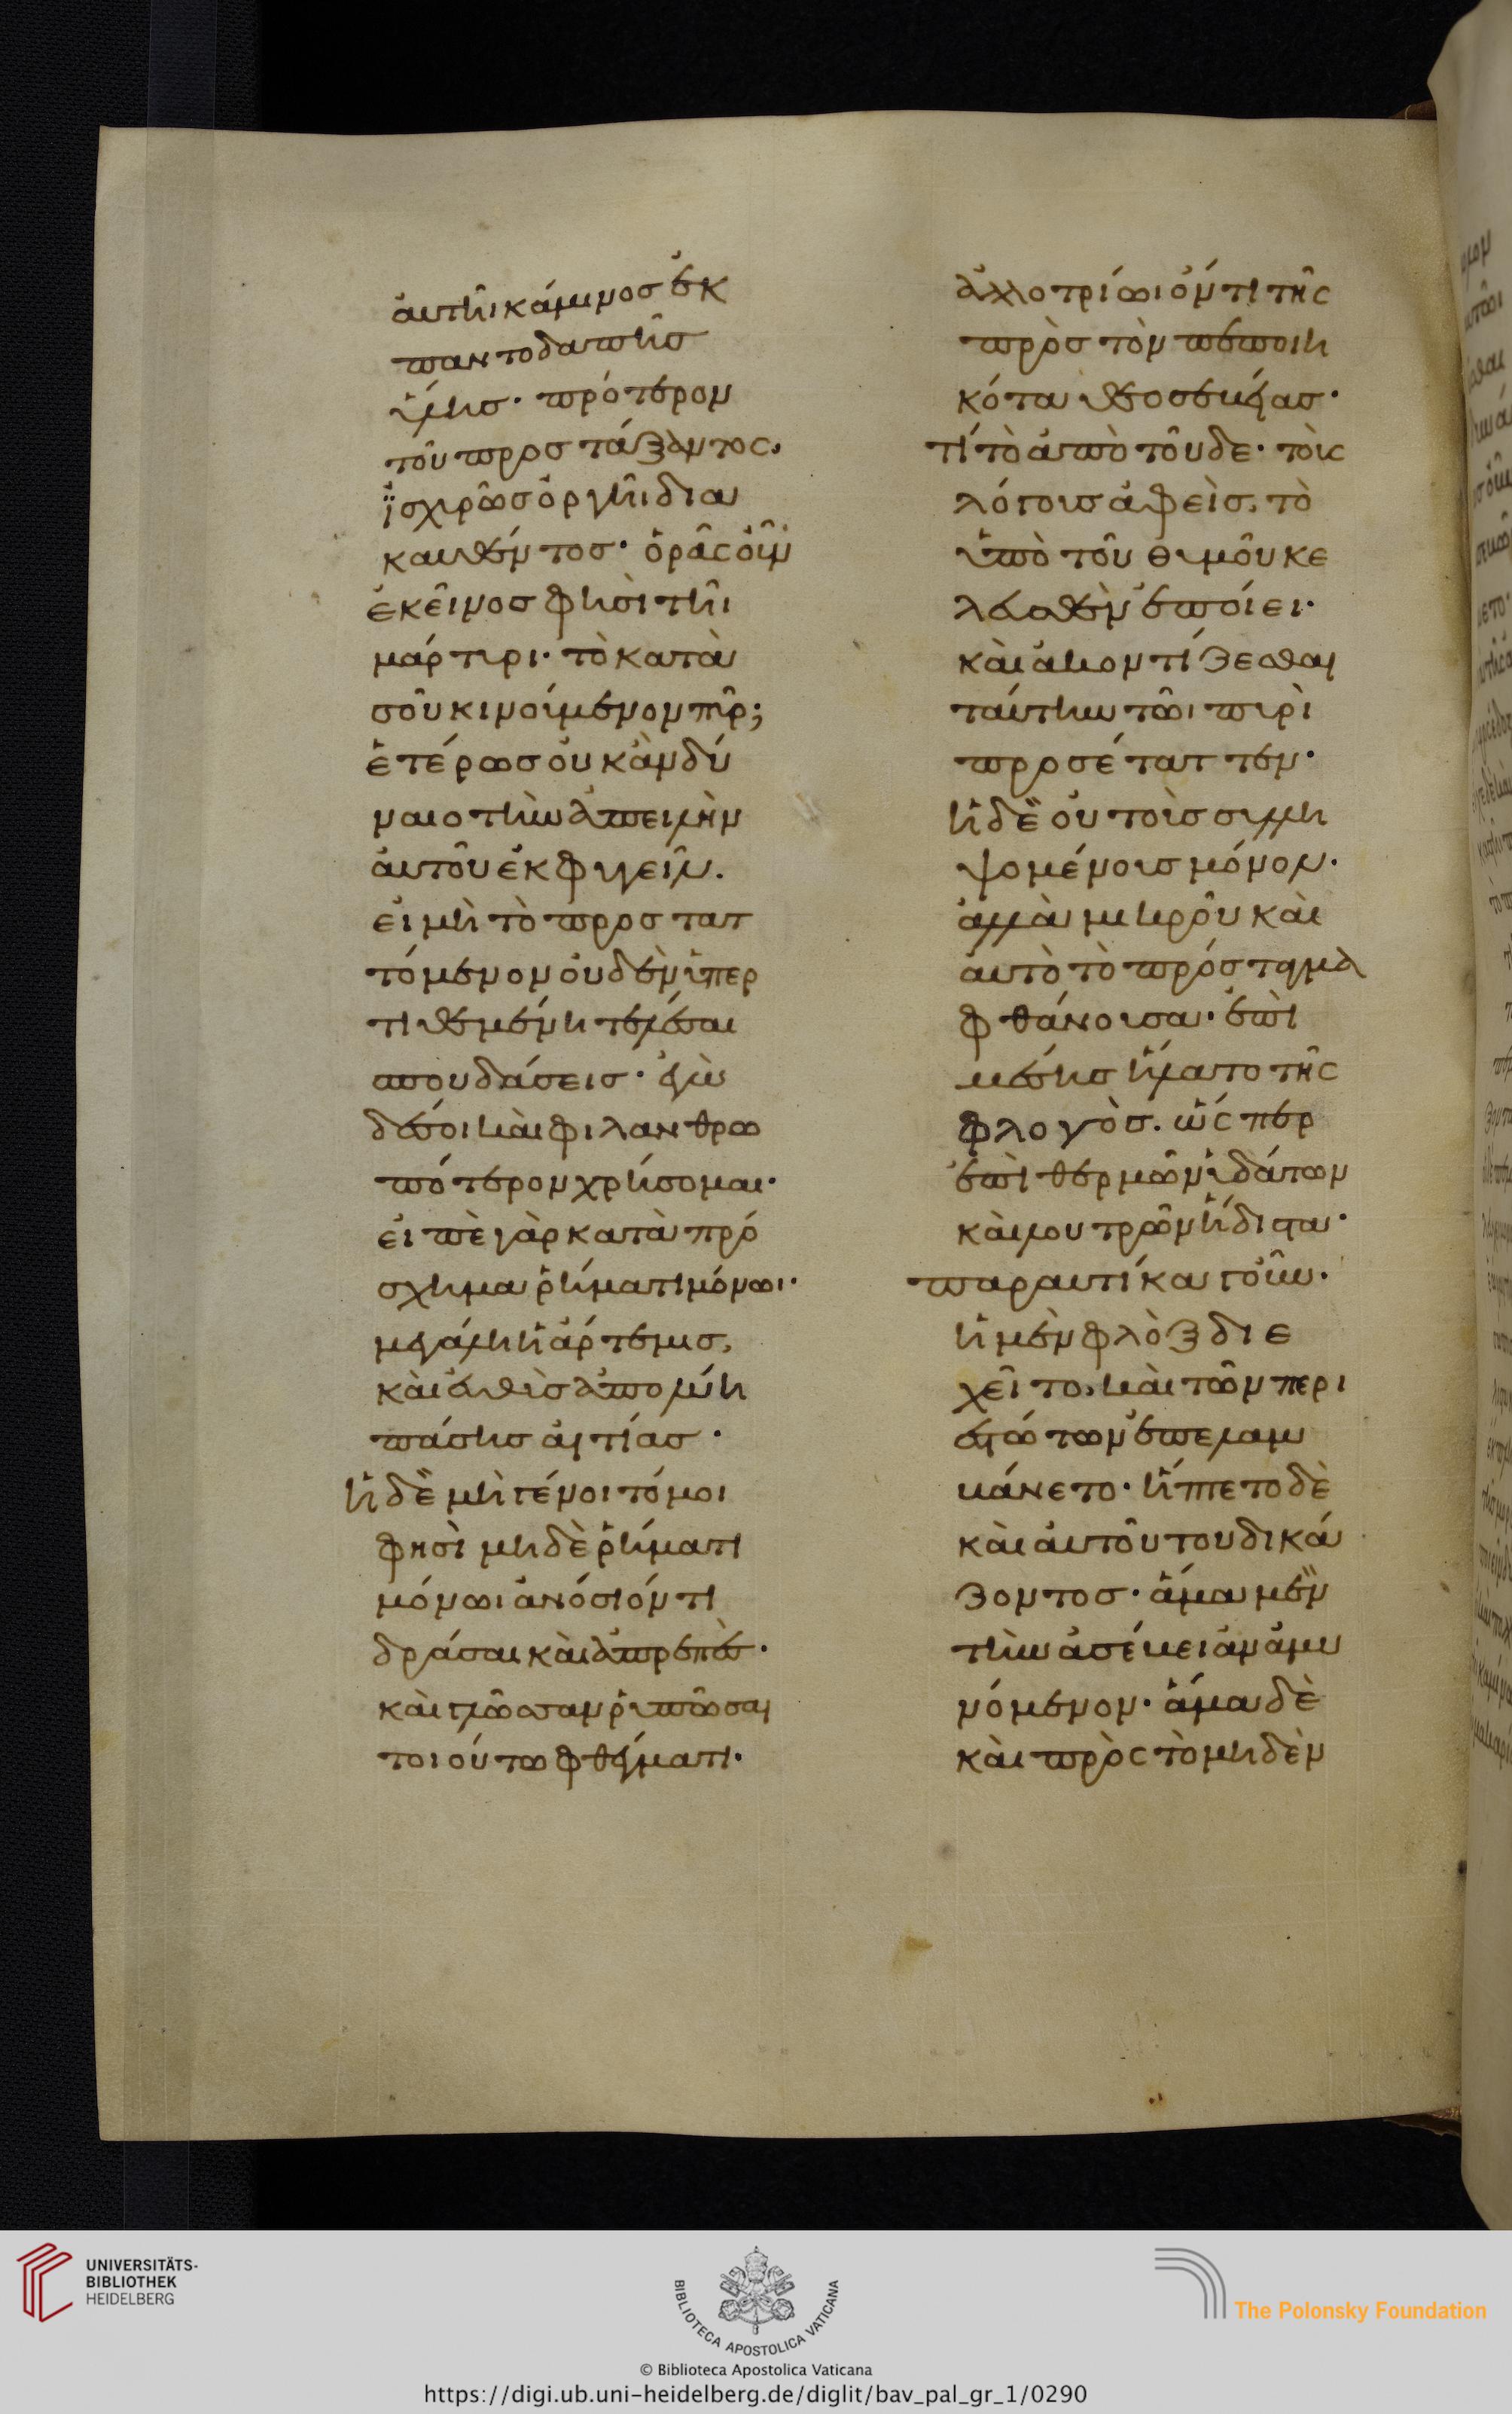 ἀυτῆι κάμινος ἐκ
παντοδαπῆσ
ὕλησ· πρότερον
τοῦ προστάξαντος,
ἰσχυρῶσ ὀργῆι δια
καυθέντοσ· ὁρᾶς οὖν
ἐκεῖνοσ φησὶ τῆι
μάρτυρι· τὸ κατὰ
σοῦ κινούμενον πῦρ;
ἑτέρωσ οὐκ ἂν δύ
ναιο τὴν ἀπειλὴν
ἀυτοῦ ἐκφυγεῖν.
εἰ μὴ τὸ προσταττ
τόμενον οὐδὲν ὑπερ
τιθεμένη τελέσαι
σπουδάσεισ· ἐγὼ
δέ σοι καὶ φιλανθρω
πότερον χρήσομαι·
εἰπὲ γὰρ κατὰ πρό
σχημα ῥήματι μόνωι·
μεγάλη ἡ ἄρτεμισ,
καὶ εὐθὺσ ἀπολύη
πάσησ αἰτίασ·
ἡ δὲ μὴ γένοιτό μοι
φησὶ μηδὲ ῥήματι
μόνωι ἀνόσιόν τι
δρᾶσαι καὶ ἀπρεπέσ·
καὶ γλῶσσαν ῥυπῶσαι
τοιούτω φθέγματι·
ἀλλοτρίωι ὄντι τῆς
πρὸσ τὸν πεποιη
κότα θεοσεβείασ·
τί τὸ ἀπὸ τοῦδε· τοὺς
λόγουσ ἀφεὶσ, τὸ
ὑπὸ τοῦ θυμοῦ κε
λευσθὲν ἐποίει·
καὶ ἄκοντίζεσθαι
ταύτην τῶι πυρὶ
προσέταττεν·
ἡ δὲ οὐ τοὺσ συλλη
ψομένουσ μόνον·
ἀλλὰ μικροῦ καὶ
ἀυτὸ τὸ πρόσταγμα
φθάνουσα· ἐπὶ
μέσησ ἥλατο τῆς
φλογὸσ. ὥς περ
ἐπὶ θερμῶν ὑδάτων
καὶ λουτρῶν ἥδιστα·
παραυτίκα γοῦν·
ἡ μὲν φλὸξ διε
χεῖτο, καὶ τῶν περι
εστώτων ἐπελαμ
βάνετο· ἥπτετο δὲ
καὶ ἀυτοῦ του δικά
ζοντοσ· ἅμα μὲν
τὴν ἀσέβειαν ἀμυ
νόμενον· ἅμα δὲ
καὶ πρὸς τὸ μηδὲν
UNIVERSITÄTS-
BIBLIOTHEK
HEIDELBERG
BIBLIOTECA APOSTOLICA VATICANA
The Polonsky Foundation
© Biblioteca Apostolica Vaticana
https://digi.ub.uni-heidelberg.de/diglit/bav_pal_gr_1/0290